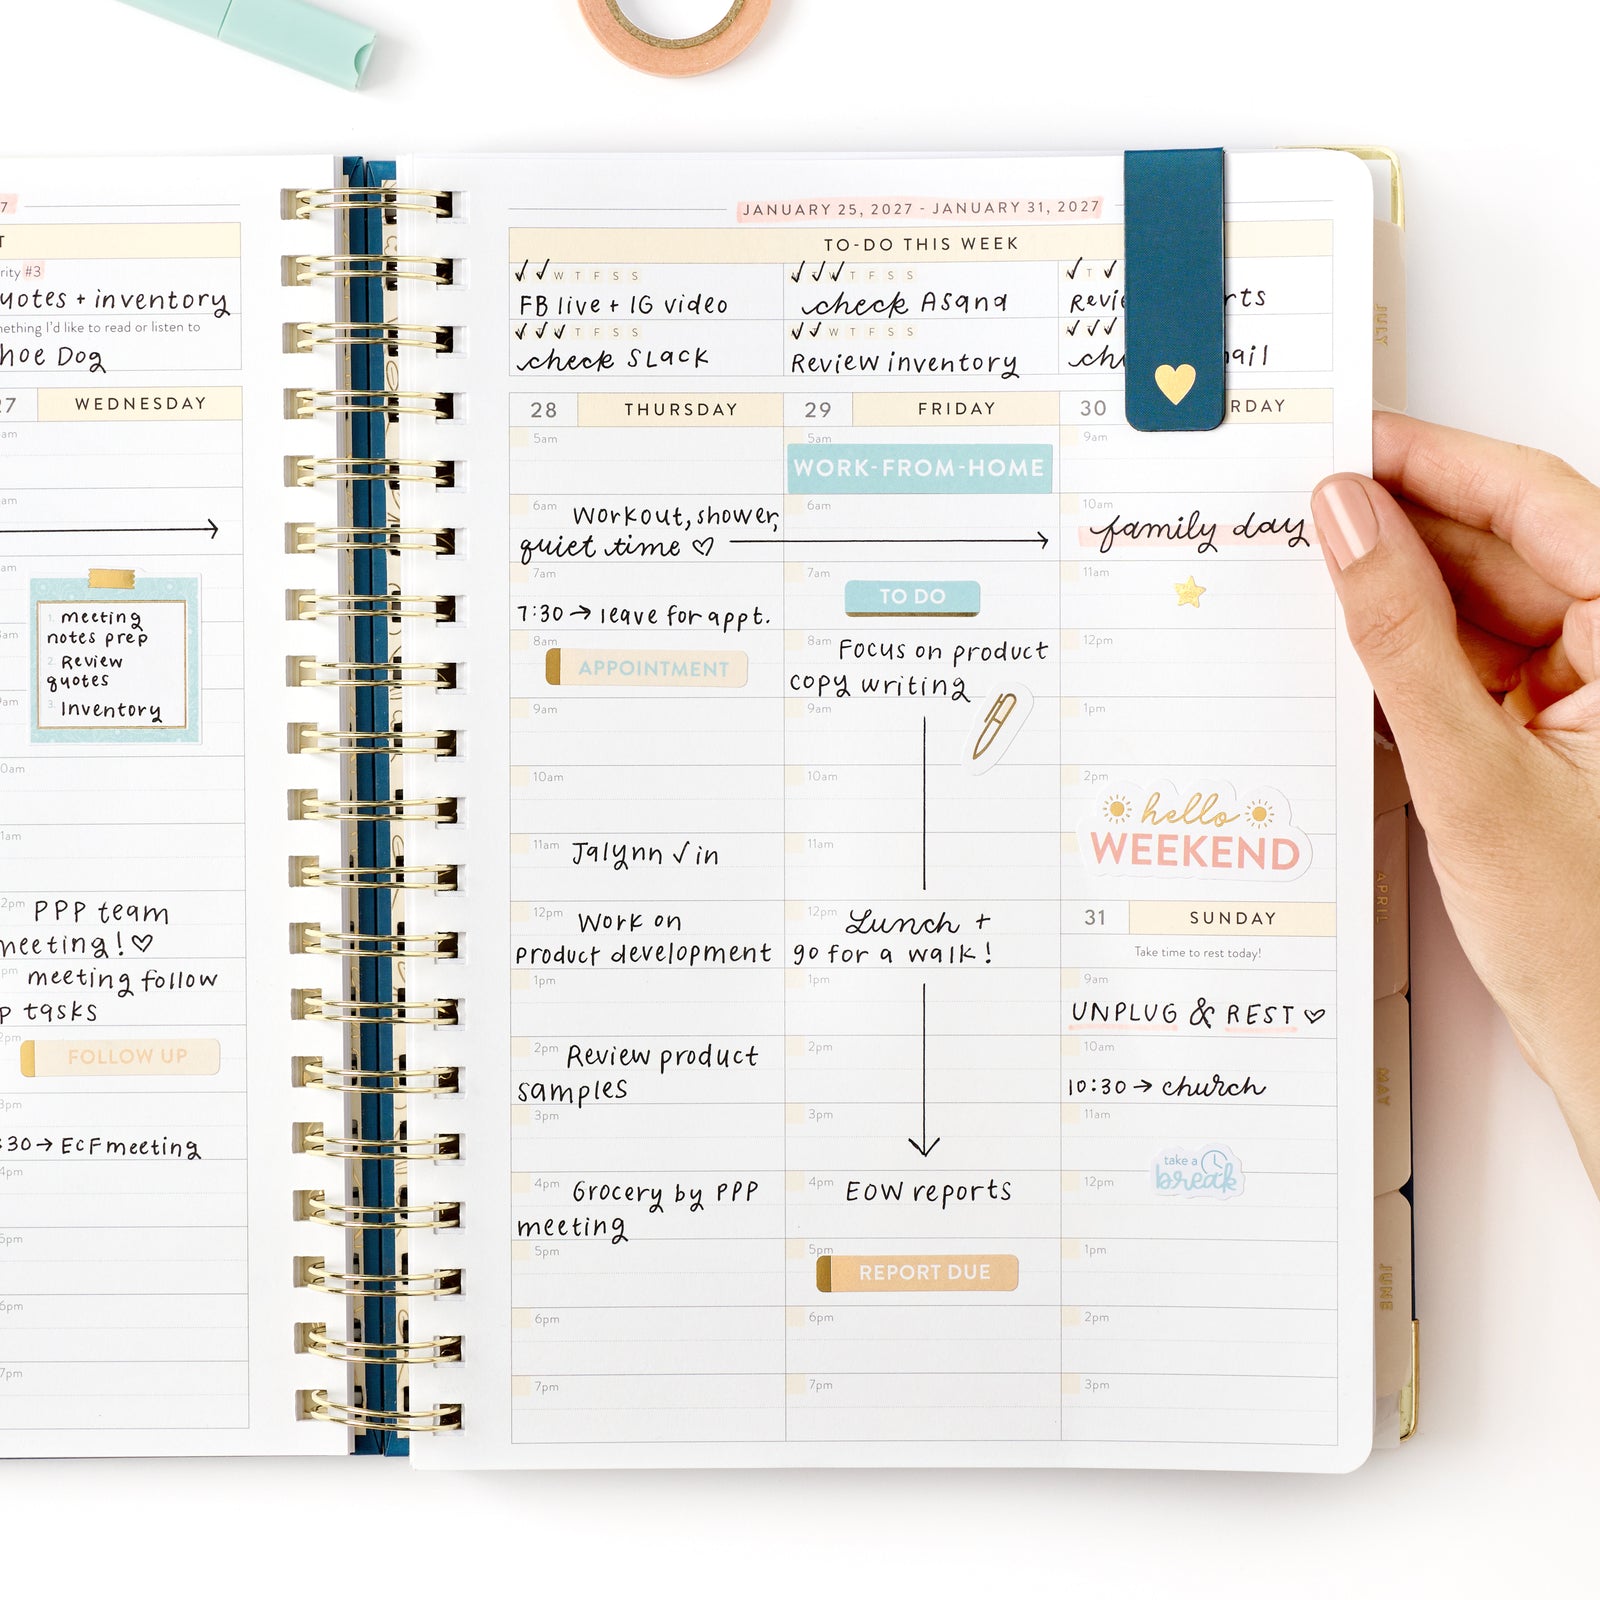 7
T
rity #3
uotes + inventory
nething I'd like to read or listen to
hoe Dog
27 WEDNESDAY
am
am
am
1. meeting
notes prep
2. Review
quotes
3. Inventory
am
9am
0am
1am
2pm PPP team
meeting! ♡
pm meeting follow
p tasks
2pm
FOLLOW UP
3pm
:30 → ECF meeting
4pm
5pm
6pm
7pm
JANUARY 25, 2027 - JANUARY 31, 2027
TO-DO THIS WEEK
✓ ✓ W T F S S
FB live + IG video
✓ ✓ ✓ T F S S
check Slack
✓ ✓ ✓ T F S S
check Asana
✓ ✓ W T F S S
Review inventory
✓ T ✓
Revi rts
✓ ✓ ✓
ch ail
28 THURSDAY
5am
6am Workout, shower,
quiet time ♡ →
7am
7:30 → leave for appt.
8am
APPOINTMENT
9am
10am
11am Jalynn ✓ in
12pm Work on
product development
1pm
2pm Review product
samples
3pm
4pm Grocery by PPP
meeting
5pm
6pm
7pm
29 FRIDAY
5am
WORK-FROM-HOME
6am
7am
TO DO
8am Focus on product
copy writing
9am
10am
11am
12pm Lunch +
go for a walk!
1pm
2pm
3pm
4pm EOW reports
5pm
REPORT DUE
6pm
7pm
30 RDAY
9am
10am
family day
11am
12pm
1pm
2pm
hello
WEEKEND
31 SUNDAY
Take time to rest today!
9am
UNPLUG & REST ♡
10am
10:30 → church
11am
take a
break
12pm
1pm
2pm
3pm
JULY
APRIL
MAY
JUNE